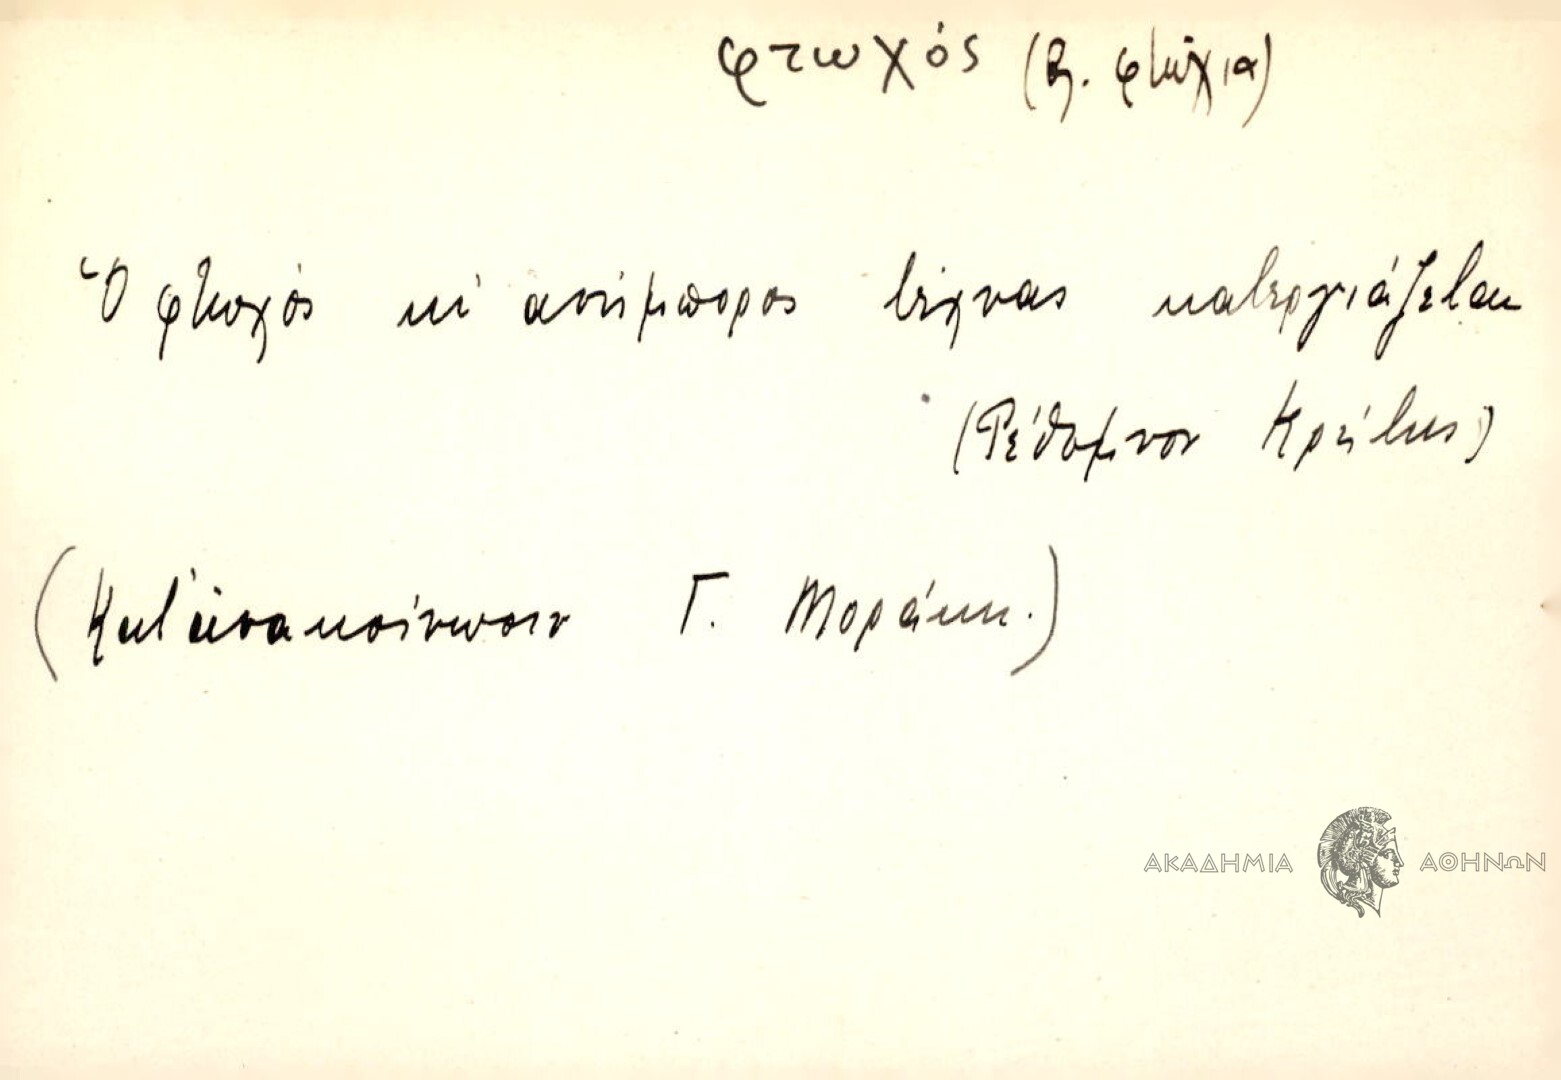 φτωχός (βλ. φτώχια)
Ὁ φτωχός κι' ανήμπορος τέχνας κατεργιάζεται
(Ρέθυμνον Κρήτης)
(Κατ' ἀνακοίνωσιν Γ. Μοράκη.)
ΑΚΑΔΗΜΙΑ ΑΘΗΝΩΝ